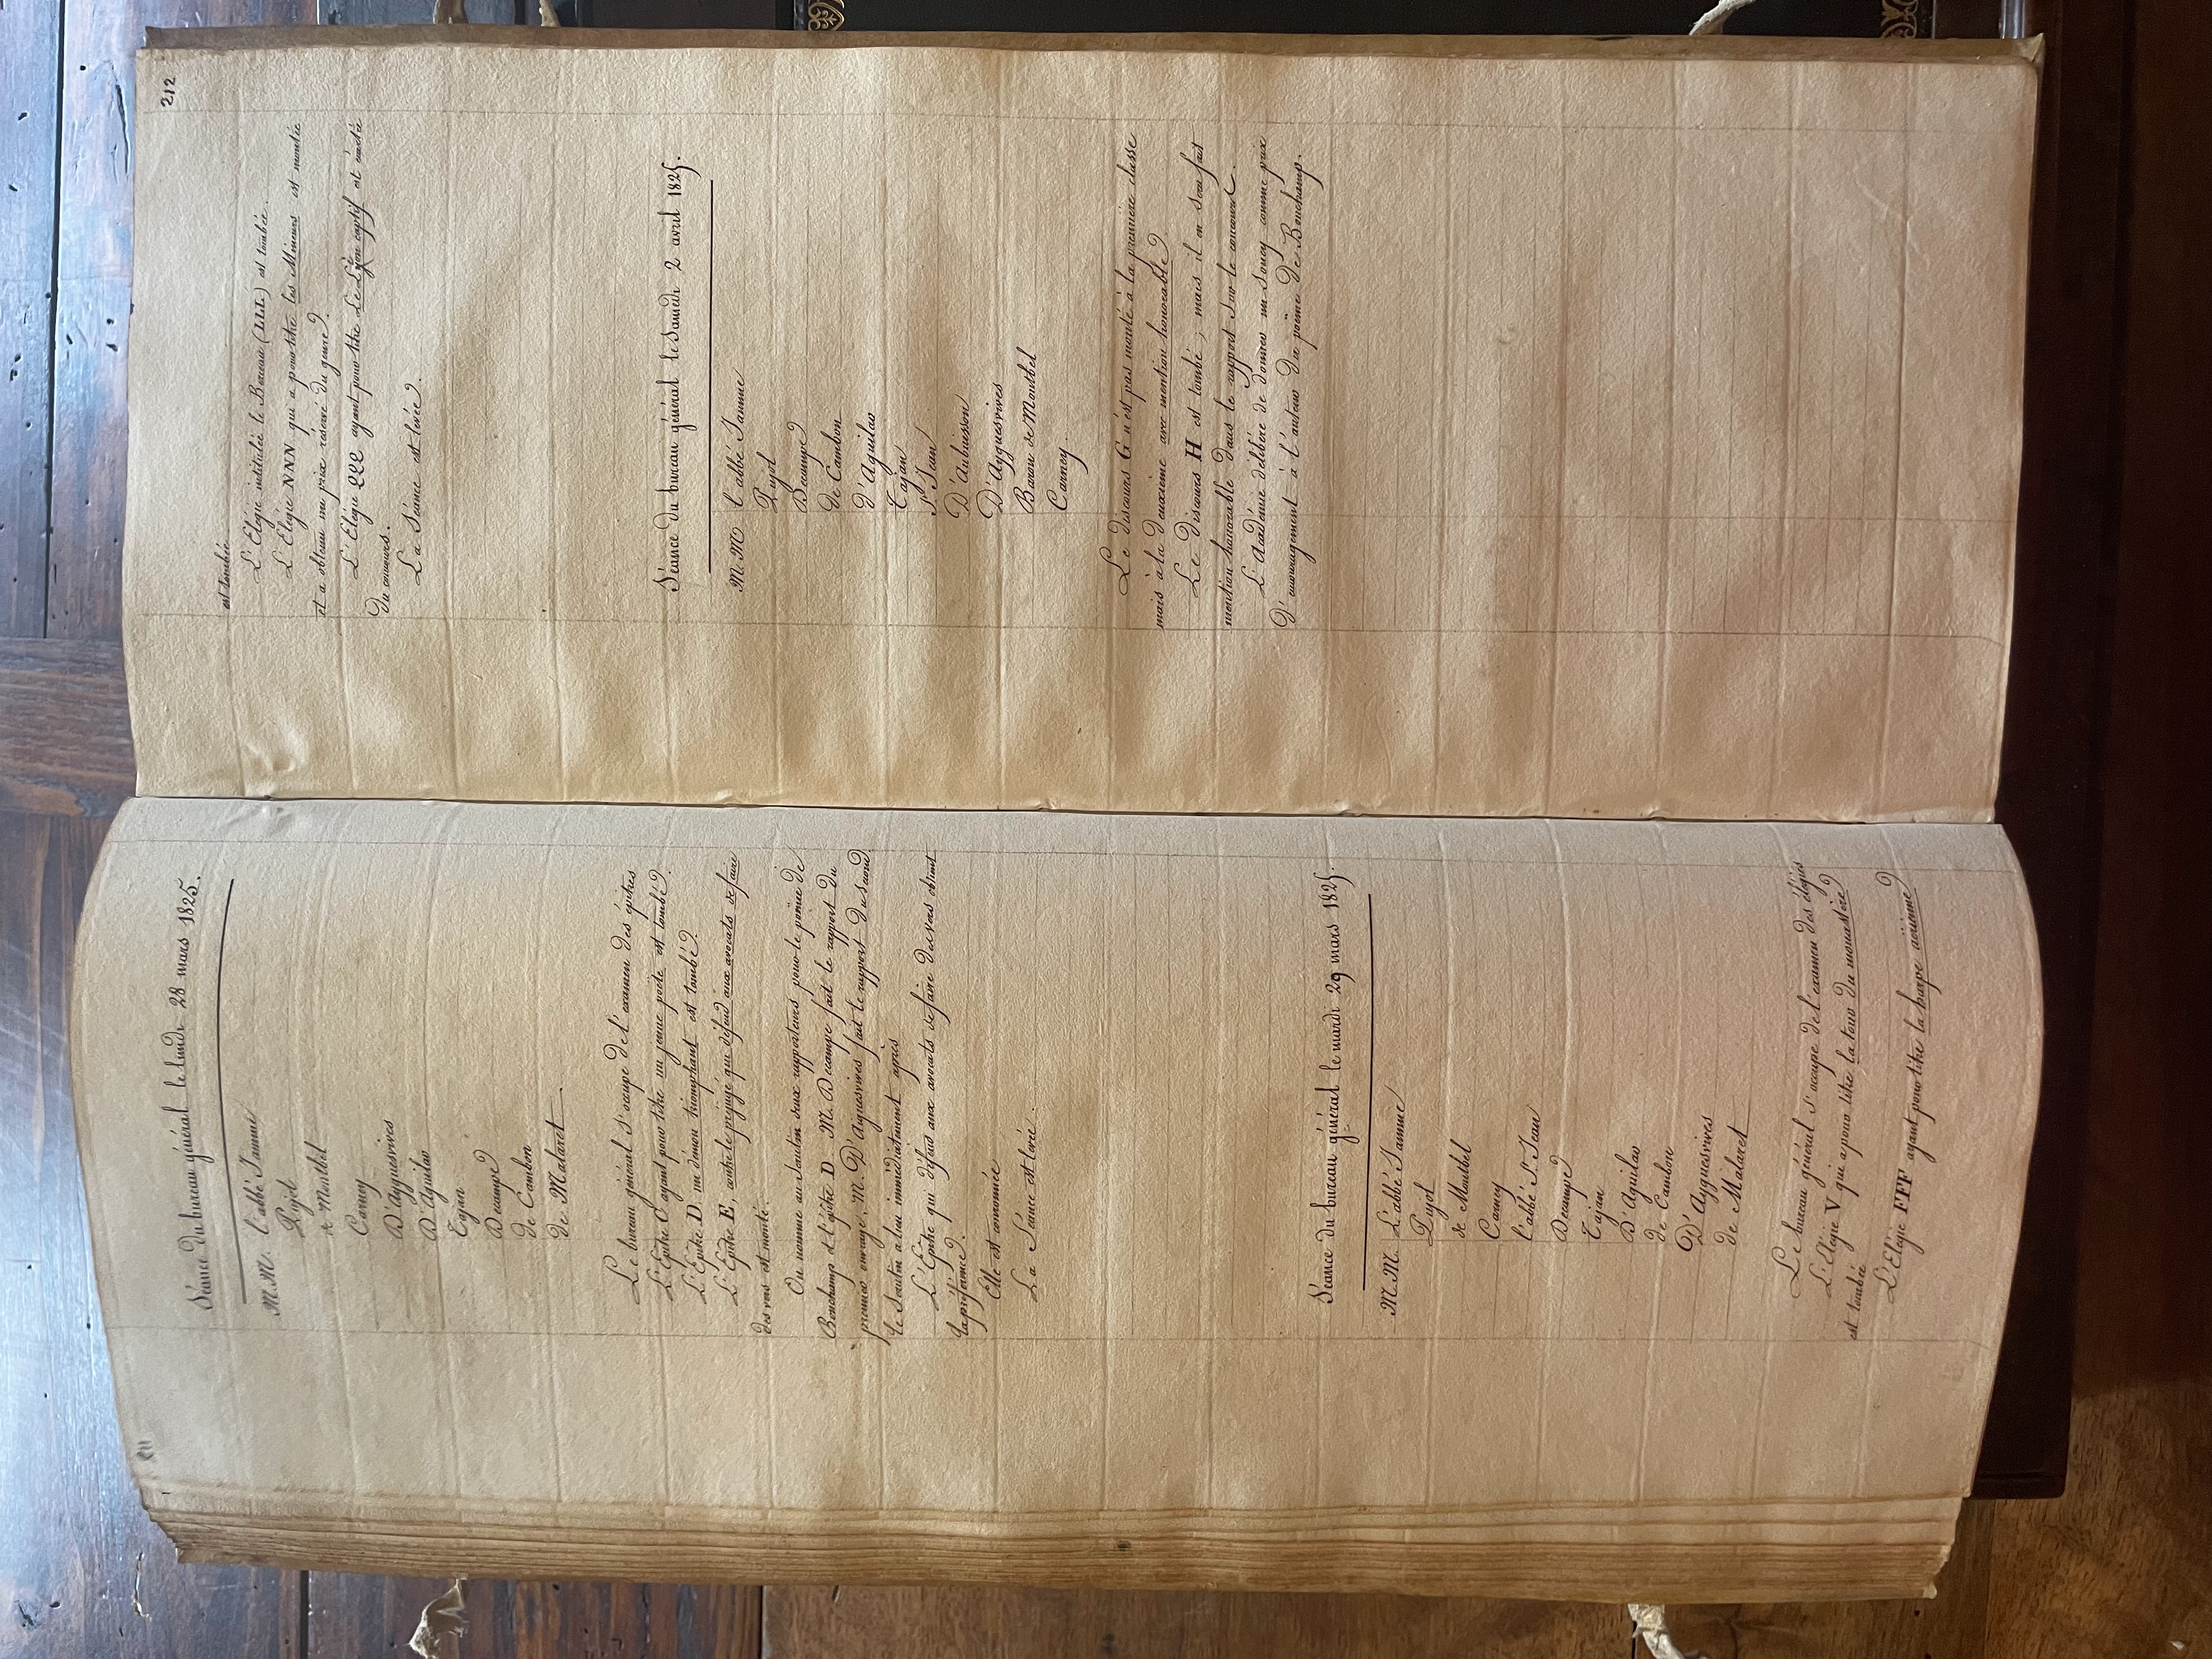 211
Séance du bureau général le lundi 28 mars 1825.
M.M. l'abbé Jamme
Pujol
de Montbel
Carney
D'Ayguesvives
D'Aguilar
Tajan
Decampe
de Cambon
de Malaret
Le bureau général s'occupe de l'examen des épitres
L'Epitre C ayant pour titre un jeune poëte est tombé.
L'Epitre D. un démon triomphant est tombé.
L'Epitre E, contre le préjugé qui défend aux avocats de faire
des vers est monté.
On nomme au scrutin deux rapporteurs pour le poëme de
Bonchamp et l'épitre D. M. Decampe fait le rapport du
premier ouvrage, M. D'Aguesvives fait le rapport du second.
le Scrutin a lieu immédiatement après
L'Epitre qui défend aux avocats de faire des vers obtient
la préférence.
Elle est couronnée
La Séance est levée.
Séance du bureau général le mardi 29 mars 1825.
M.M. L'abbé Jamme
Pujol
de Montbel
Carney
l'abbé St. Jean
Decampe
Tajan
D'Aguilar
de Cambon
D'Ayguesvives
de Malaret
Le bureau général s'occupe de l'examen des élégies
L'Elégie V qui a pour titre la tour du monastère
est tombée
L'Elégie FFF ayant pour titre la harpe éolienne
212
est tombée.
L'Elégie intitulée le Berceau (LLL) est tombée.
L'Elégie NNN qui a pour titre les Mineurs est montée
et a obtenu un prix réservé du genre.
L'Elégie QQQ ayant pour titre Le Lyon captif est écartée
du concours.
La Séance est levée.
Séance du bureau général le Samedi 2 avril 1825.
M.M l'abbé Jamme
Pujol
Decampe
de Cambon
D'Aguilar
Tajan
St. Jean
D'Aubuisson
D'Ayguesvives
Baron de Montbel
Carney.
Le discours G n'est pas monté à la première classe
mais à la deuxième avec mention honorable.
Le discours H est tombé; mais il en sera fait
mention honorable dans le rapport sur le concours.
L'Académie délibère de donner un Soucy comme prix
D'encouragement à l'auteur du poëme de Bonchamp.